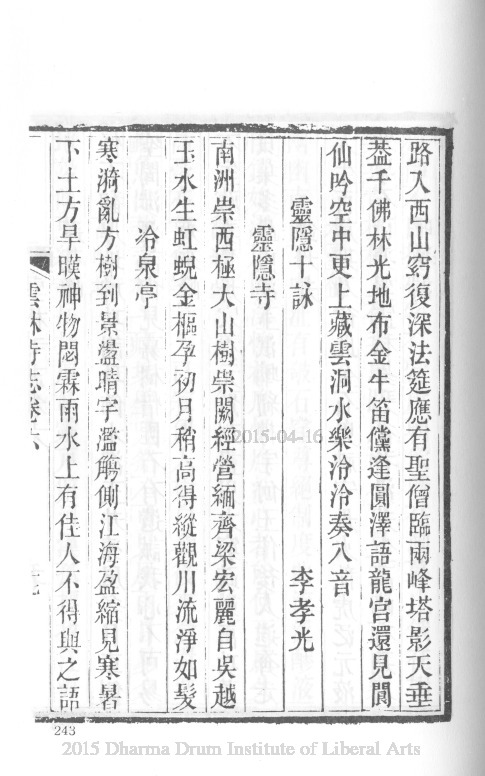 路入西山窈復深法筵應有聖僧臨兩峰塔影天垂
葢千佛林光地布金牛笛儻逢圓澤語龍宮還見閬
仙吟空中更上藏雲洞水樂泠泠奏八音
靈隱十詠 李孝光
靈隱寺
南洲崇西極大山樹崇闕經營緬齊梁宏麗自吳越
玉水生虹蜺金樞孕初月稍高得縱觀川流淨如髮
冷泉亭
寒漪亂方樹到景盪晴字濫觴側江海盈縮見寒暑
下土方旱暵神物閟霖雨水上有佳人不得與之語
雲林寺志卷六
243
2015-04-16
2015 Dharma Drum Institute of Liberal Arts